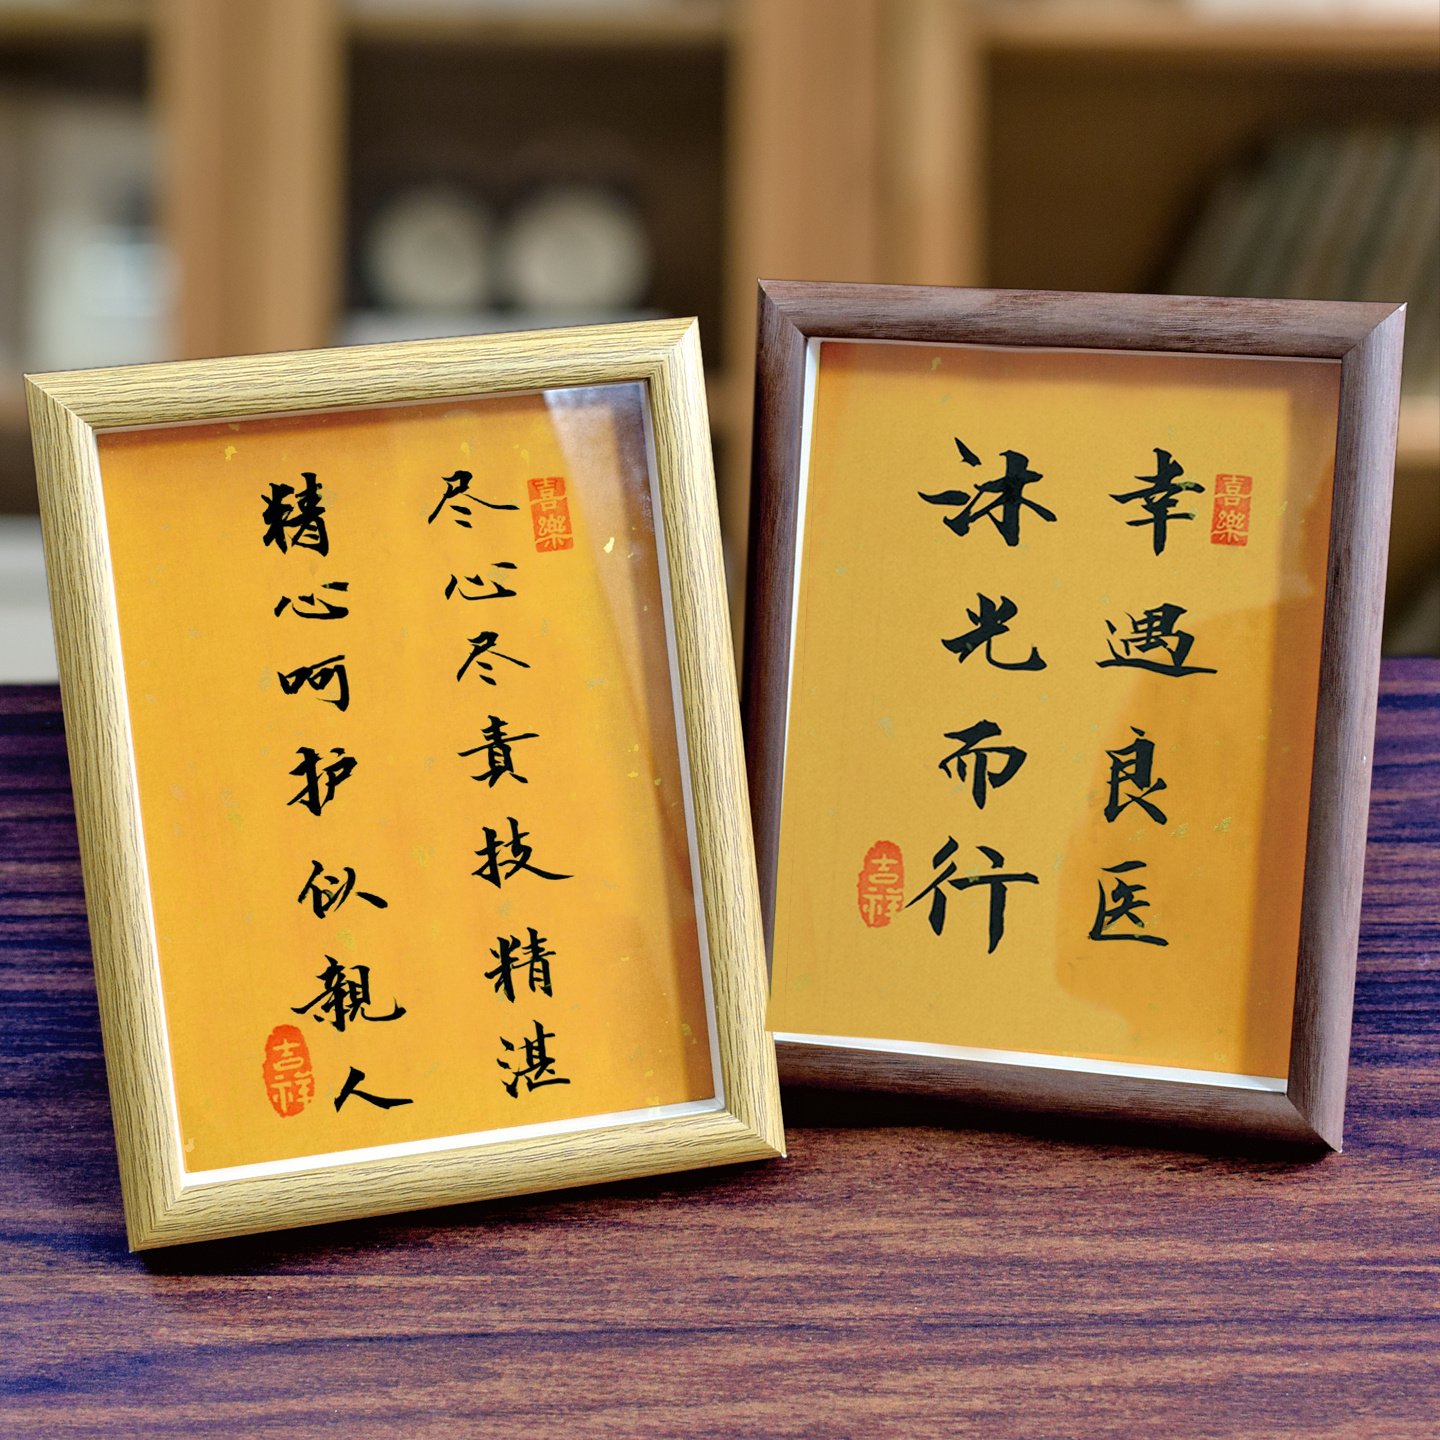 喜樂
尽心尽責技精湛
精心呵护似親人
吉祥
喜樂
幸遇良医
沐光而行
吉祥